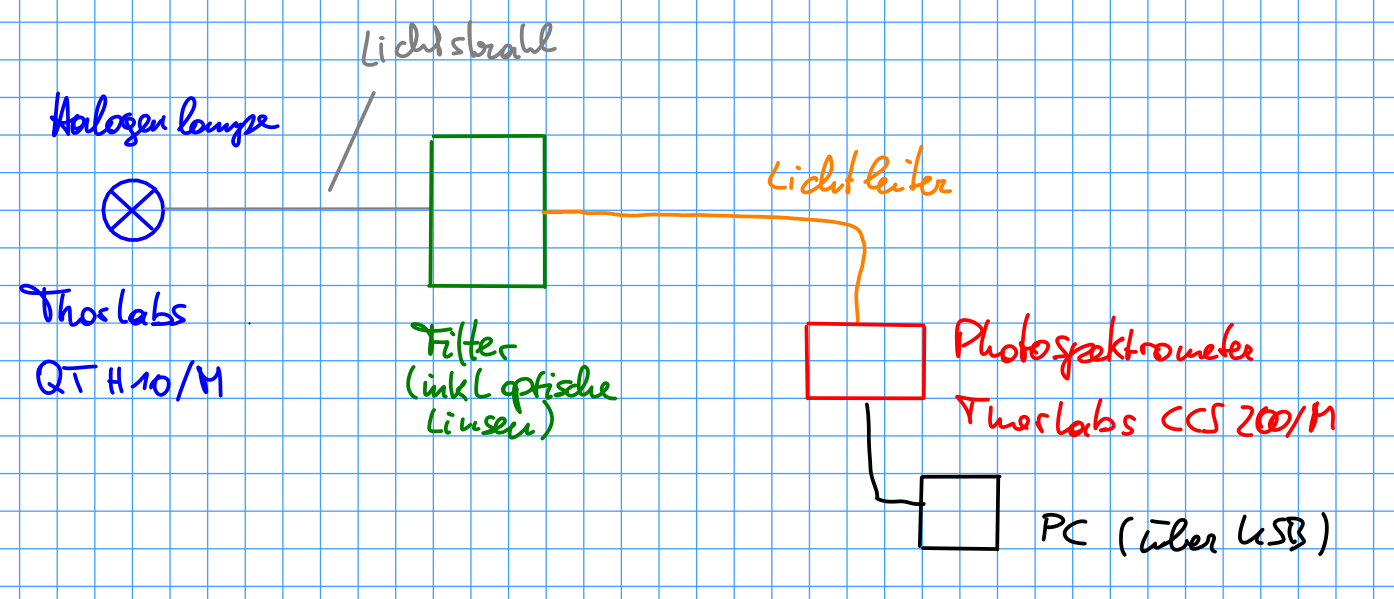 Lichtstrahl
Halogenlampe
Lichtleiter
Thorlabs
QTH10/M
Filter
(inkl optische
Linsen)
Photospektrometer
Thorlabs CCS 200/M
PC (über USB)